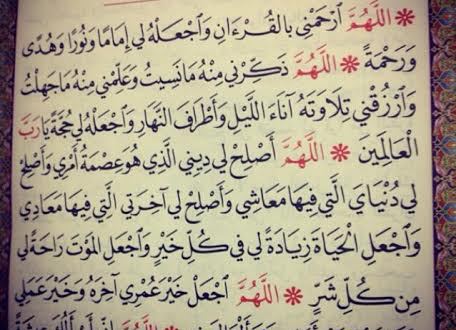 ❋ اَللَّهُمَّ ٱرْحَمْنِي بِالقُرْءَانِ وَٱجْعَلْهُ لِي إِمَامًا وَنُورًا وَهُدًى
وَرَحْمَةً ❋ اَللَّهُمَّ ذَكِّرْنِي مِنْهُ مَانَسِيتُ وَعَلِّمْنِي مِنْهُ مَاجَهِلْتُ
وَٱرْزُقْنِي تِلَاوَتَهُ آنَاءَ اللَّيْلِ وَأَطْرَافَ النَّهَارِ وَٱجْعَلْهُ لِي حُجَّةً يَارَبَّ
الْعَالَمِينَ ❋ اَللَّهُمَّ أَصْلِحْ لِي دِينِي الَّذِي هُوَ عِصْمَةُ أَمْرِي وَأَصْلِحْ
لِي دُنْيَايَ الَّتِي فِيهَا مَعَاشِي وَأَصْلِحْ لِي آخِرَتِي الَّتِي فِيهَا مَعَادِي
وَٱجْعَلِ الْحَيَاةَ زِيَادَةً لِي فِي كُلِّ خَيْرٍ وَٱجْعَلِ الْمَوْتَ رَاحَةً لِي
مِن كُلِّ شَرٍّ ❋ اَللَّهُمَّ ٱجْعَلْ خَيْرَ عُمْرِي آخِرَهُ وَخَيْرَ عَمَلِي